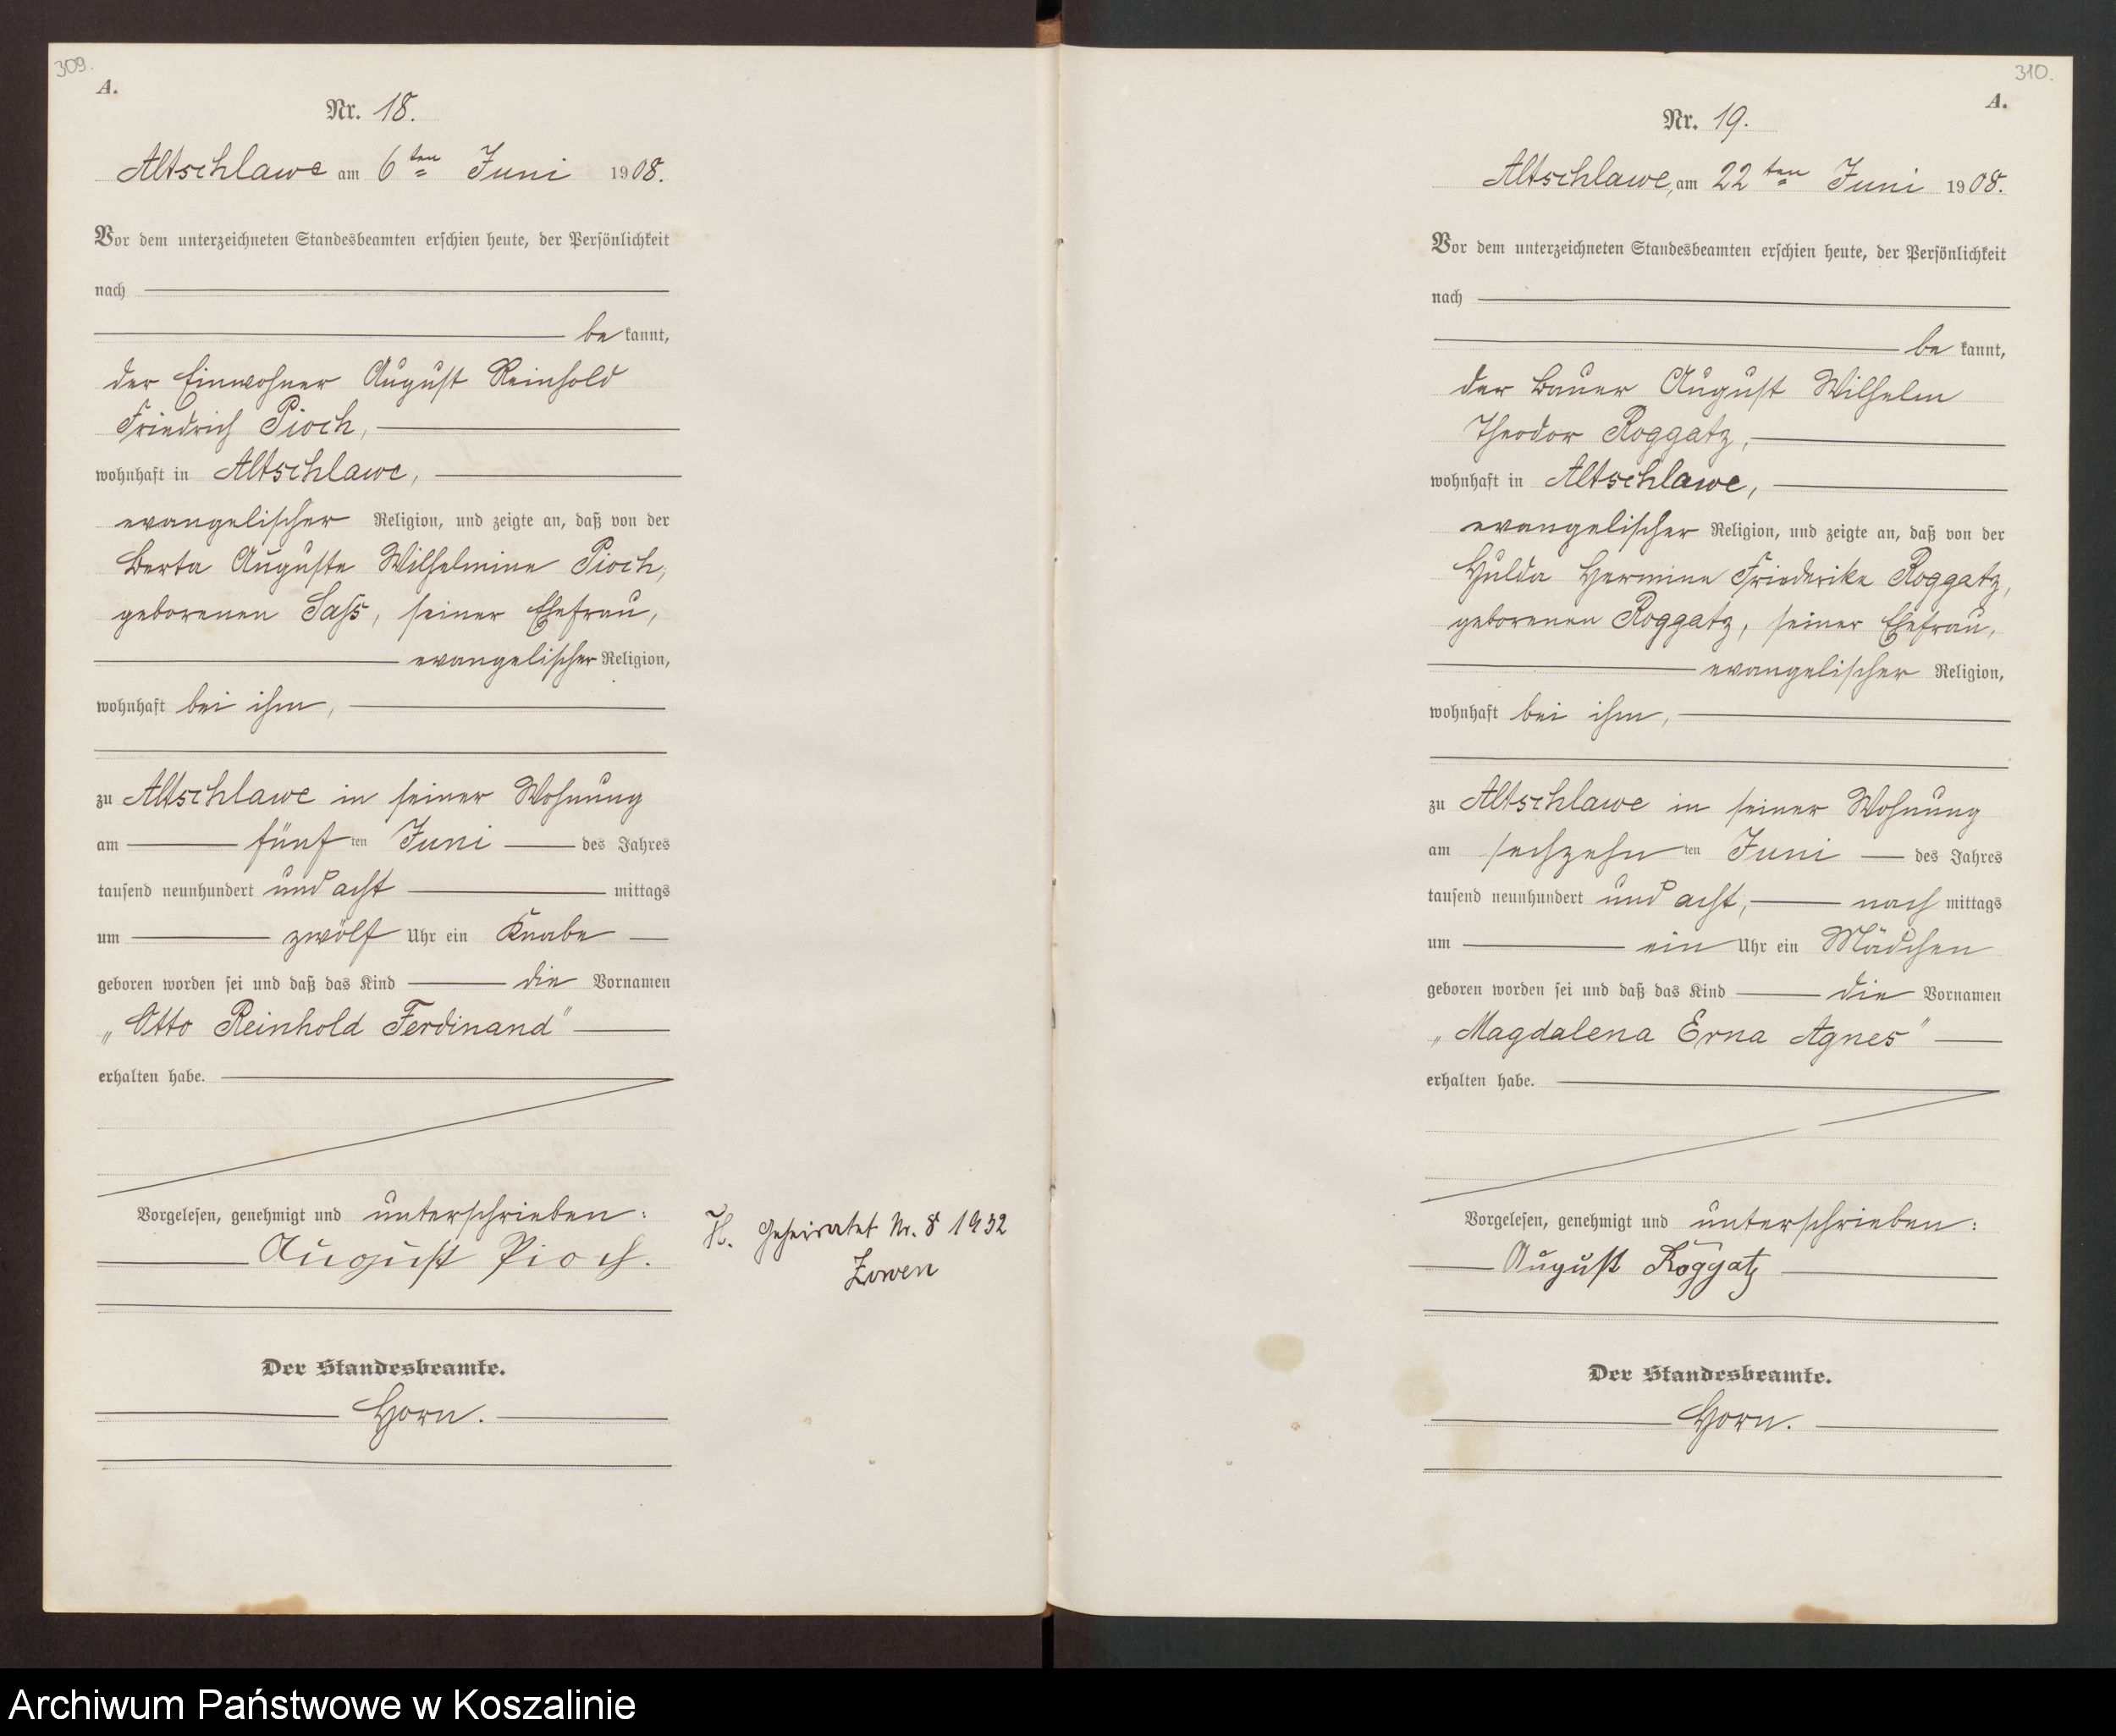 309.
A.
Nr. 18.
Altschlawe am 6ten Juni 1908.
Vor dem unterzeichneten Standesbeamten erschien heute, der Persönlichkeit
nach
be kannt,
der Einwohner August Reinhold
Friedrich Pioch,
wohnhaft in Altschlawe,
evangelischer Religion, und zeigte an, daß von der
Berta Auguste Wilhelmine Pioch,
geborenen Saß, seiner Ehefrau,
evangelischer Religion,
wohnhaft bei ihm,
zu Altschlawe in seiner Wohnung
am fünf ten Juni des Jahres
tausend neunhundert und acht mittags
um zwölf Uhr ein Knabe
geboren worden sei und daß das Kind die Vornamen
„Otto Reinhold Ferdinand"
erhalten habe.
Vorgelesen, genehmigt und unterschrieben:
August Pioch.
Der Standesbeamte.
Horn.
H. Geheiratet Nr. 8 1932
Zowen
310.
A.
Nr. 19.
Altschlawe, am 22ten Juni 1908.
Vor dem unterzeichneten Standesbeamten erschien heute, der Persönlichkeit
nach
be kannt,
der Bauer August Wilhelm
Theodor Roggatz,
wohnhaft in Altschlawe,
evangelischer Religion, und zeigte an, daß von der
Hulda Hermine Friederike Roggatz,
geborenen Roggatz, seiner Ehefrau,
evangelischer Religion,
wohnhaft bei ihm,
zu Altschlawe in seiner Wohnung
am sechzehn ten Juni des Jahres
tausend neunhundert und acht, nach mittags
um ein Uhr ein Mädchen
geboren worden sei und daß das Kind die Vornamen
„Magdalena Erna Agnes"
erhalten habe.
Vorgelesen, genehmigt und unterschrieben:
August Roggatz
Der Standesbeamte.
Horn.
Archiwum Państwowe w Koszalinie